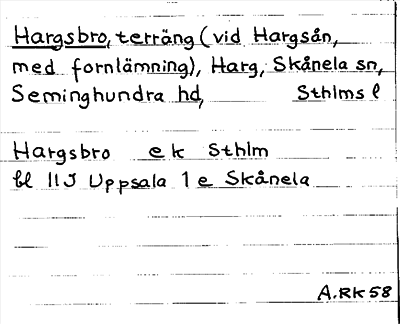 Hargsbro, terräng (vid Hargsån,
med fornlämning), Harg, Skånela sn,
Seminghundra hd, Sthlms l
Hargsbro ek Sthlm
bl 11J Uppsala 1 e Skånela
A.RK 58